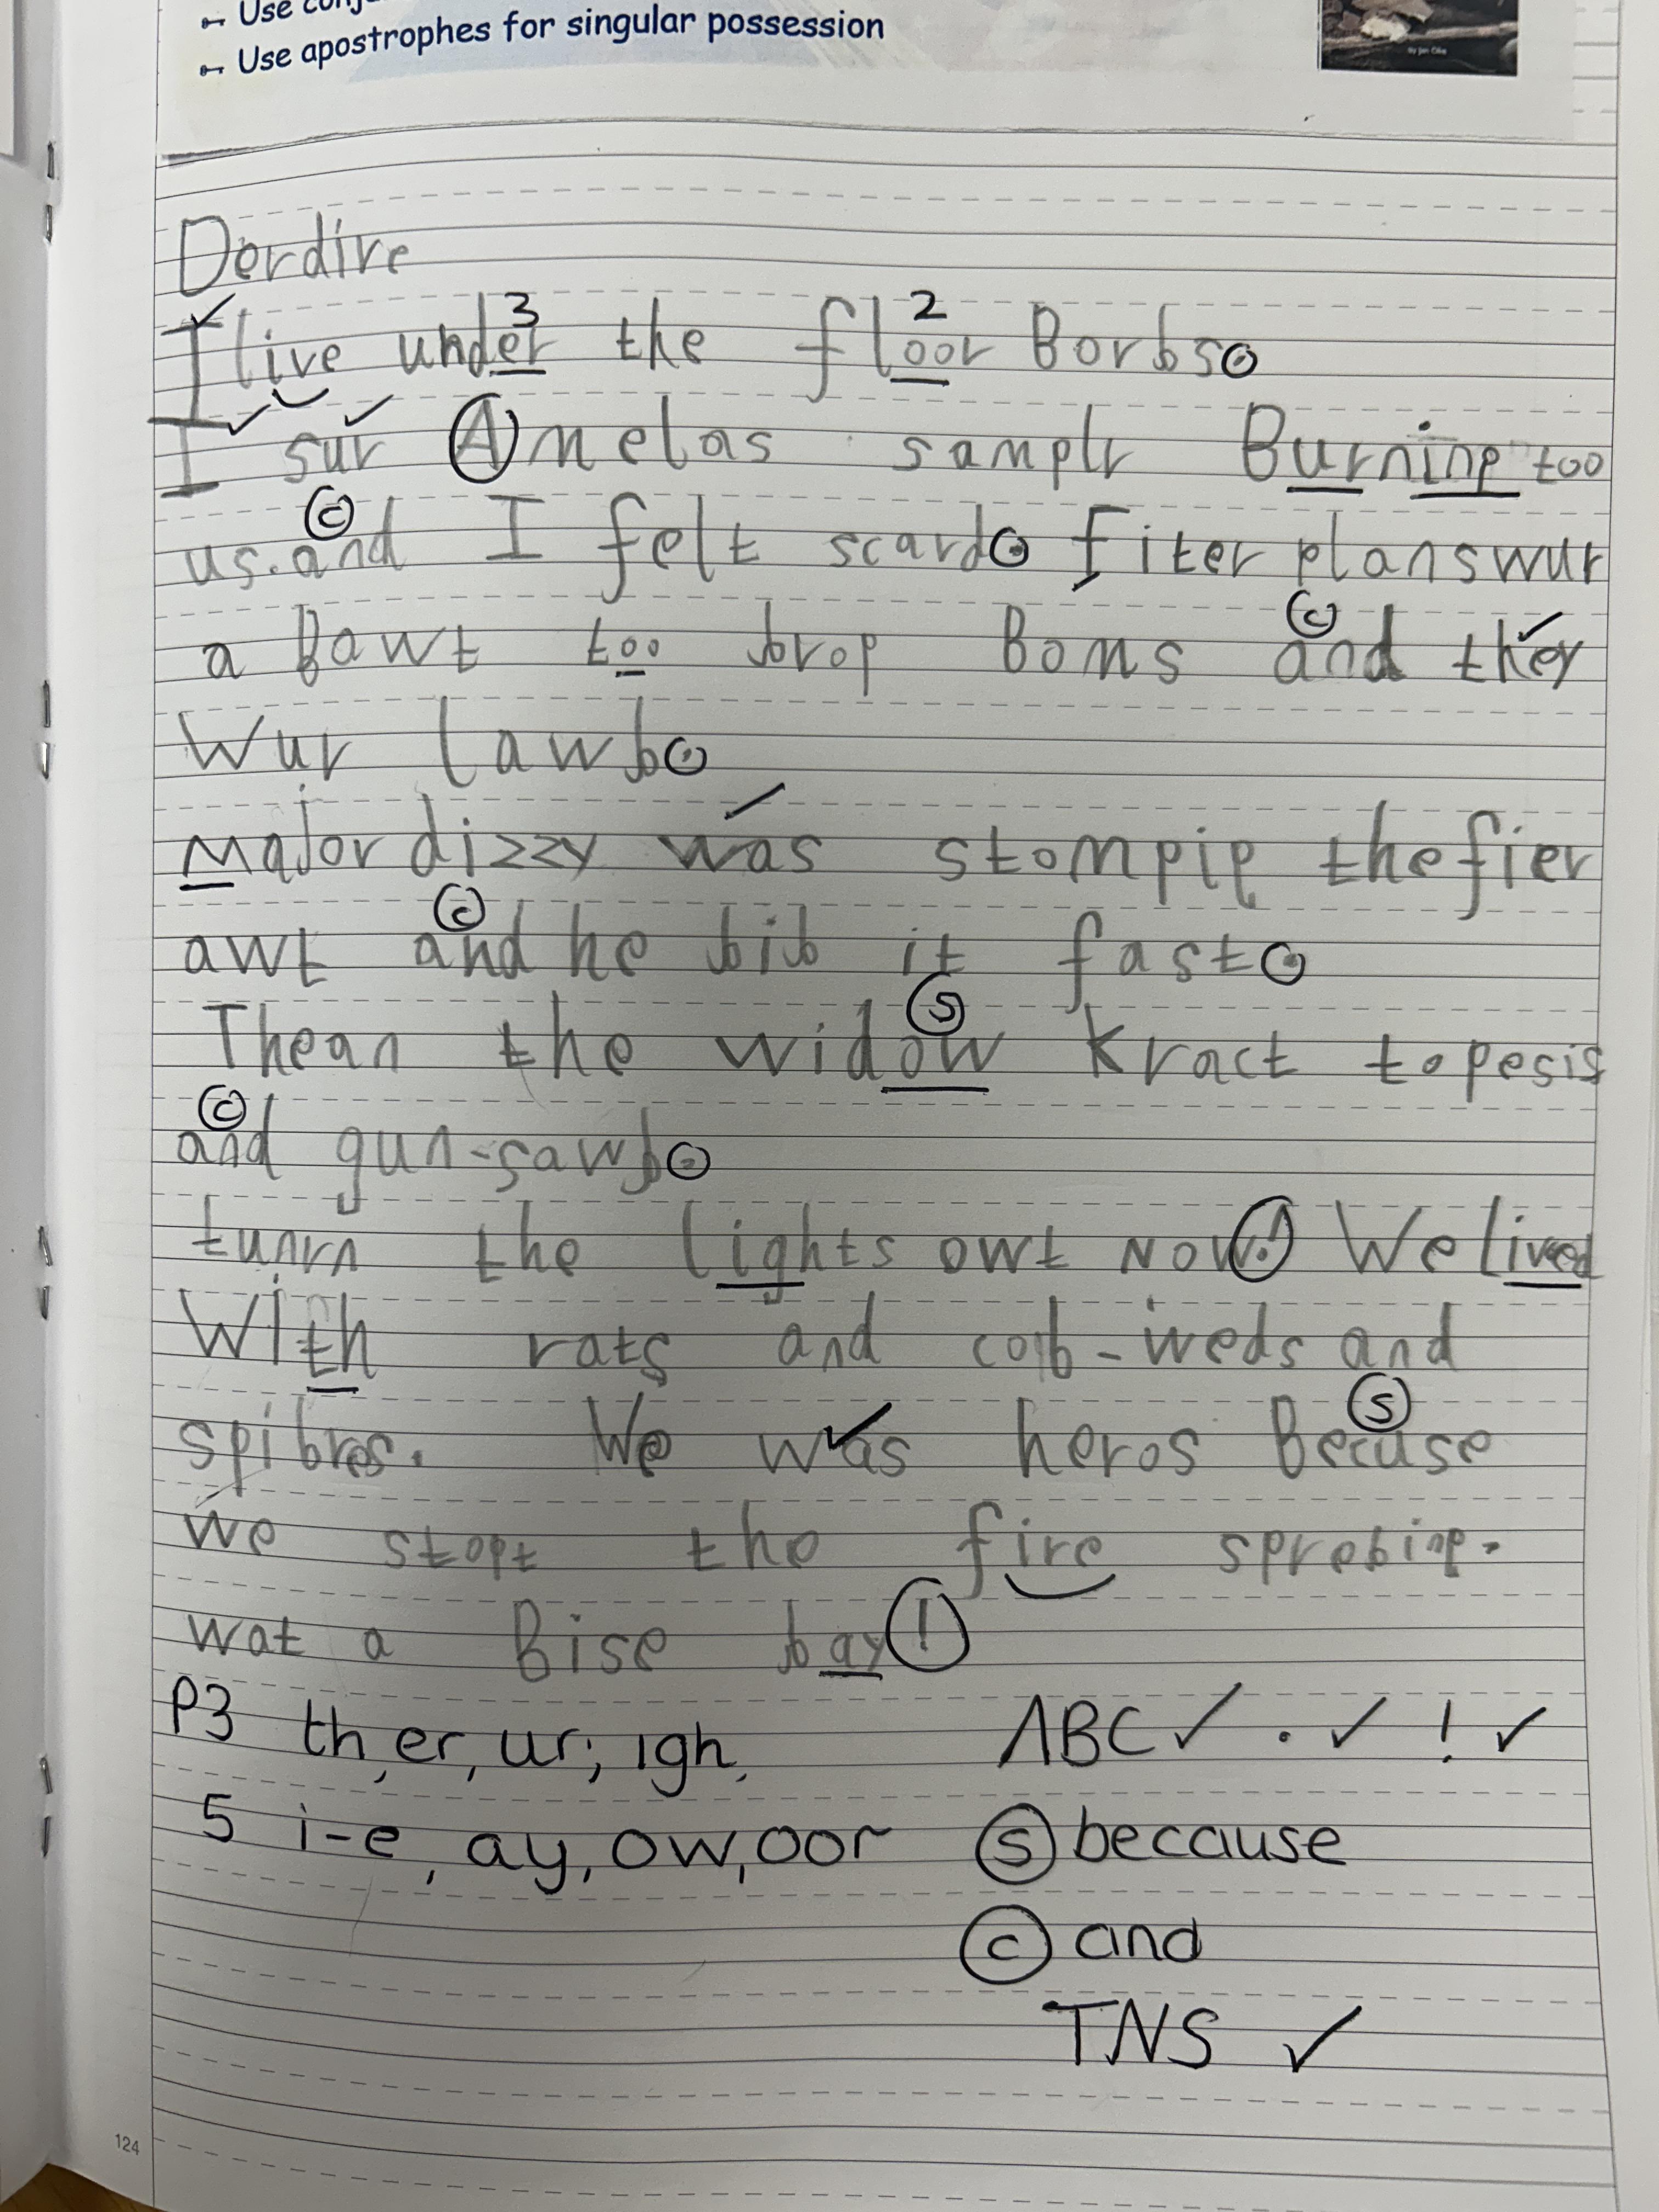 Use
Use apostrophes for singular possession
Derdire
I live under the floor Borbs.
3 2
I sur Amelas samplr Burning too
us. and I felt scard. fiter plans wur
c
a Bawt too brop Boms and they
c
wur lawb.
major dizzy was stompip the fier
awt and he bib it fast.
c
Thean the widow kract to pesis
s
and gun-sawb.
c
turn the lights owt now! We lived
With rats and cob-weds and
spibres. We was heros Becuse
s
we stopt the fire sprebing.
wat a Bise bay!
P3 th, er, ur, igh, ABC ✓ . ✓ ! ✓
5 i-e, ay, ow, oor S because
C and
TNS ✓
124